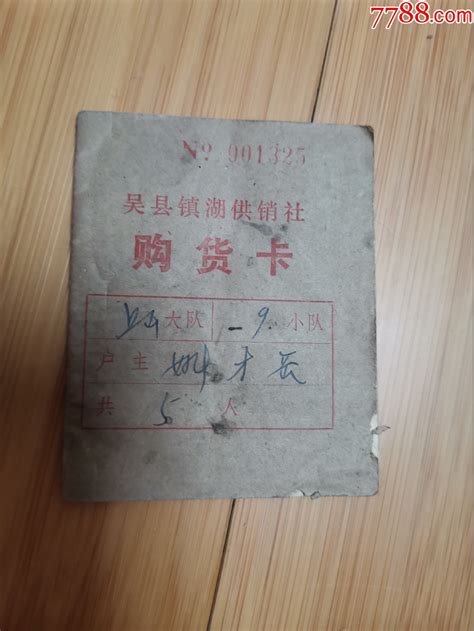 7788.com
№ 001325
吴县镇湖供销社
购货卡
大队 9 小队
户主 姚才岳
共 5 人